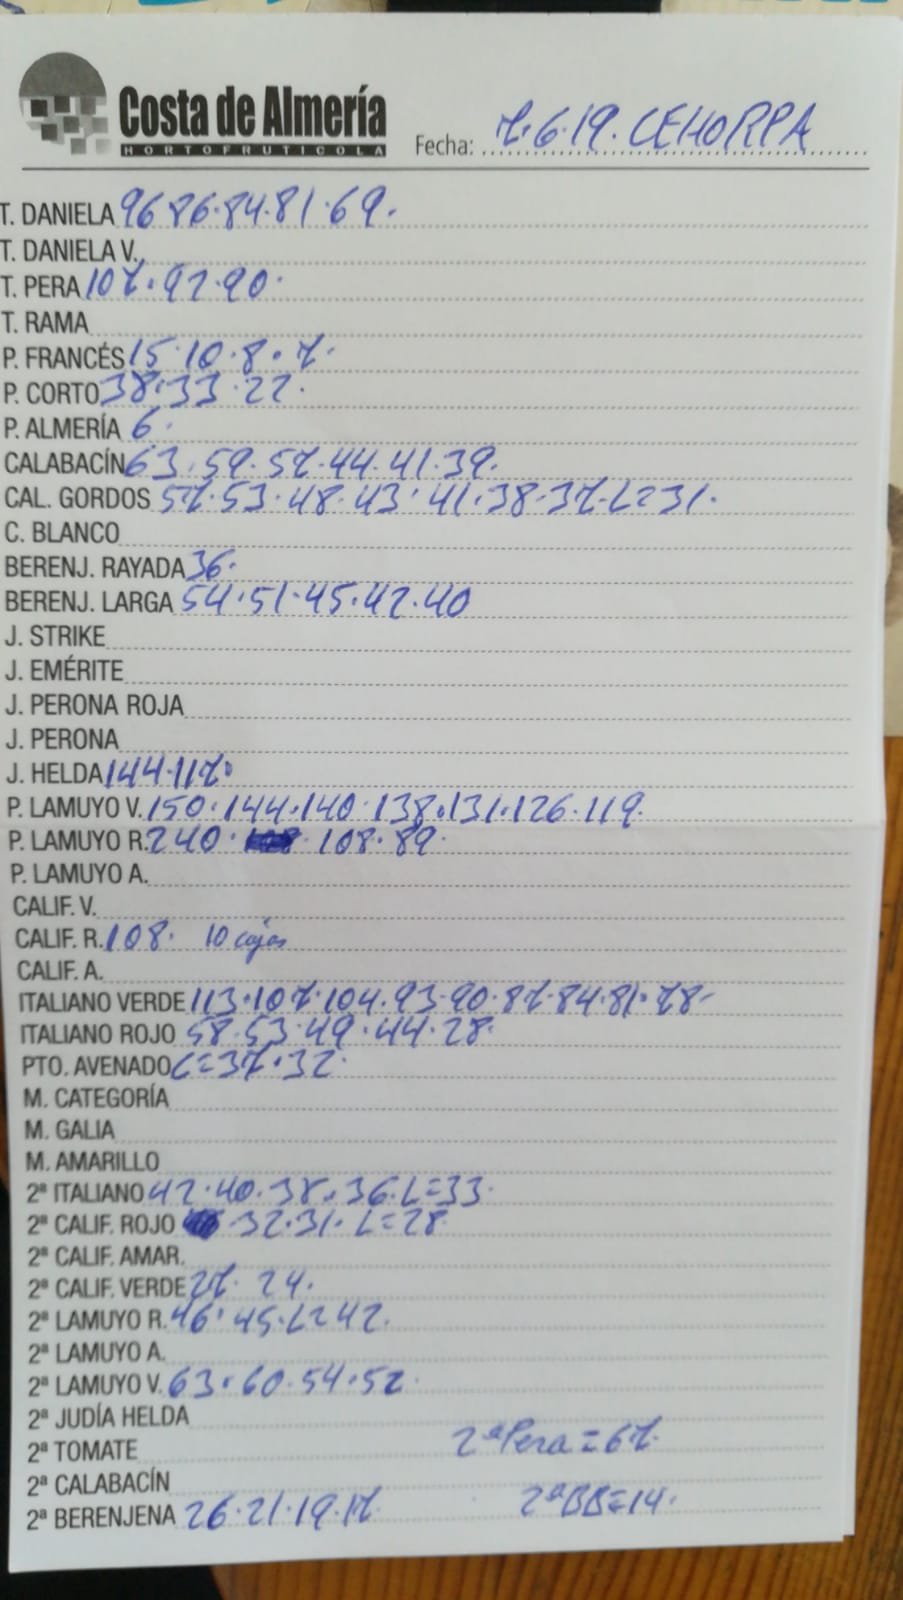 Costa de Almería
HORTOFRUTICOLA
Fecha: 7.6.19. CEHORPA
T. DANIELA 96 86.84.81.69.
T. DANIELA V.
T. PERA 107.97.90.
T. RAMA
P. FRANCÉS 15 10.8.7.
P. CORTO 38.33.22.
P. ALMERÍA 6.
CALABACÍN 63.59.57.44.41.39.
CAL. GORDOS 57.53.48.43.41.38.37.L=31.
C. BLANCO
BERENJ. RAYADA 36.
BERENJ. LARGA 54.51.45.42.40
J. STRIKE
J. EMÉRITE
J. PERONA ROJA
J. PERONA
J. HELDA 144.117.
P. LAMUYO V. 150.144.140.138.131.126.119.
P. LAMUYO R. 240. 108.89.
P. LAMUYO A.
CALIF. V.
CALIF. R. 108. 10 cajas
CALIF. A.
ITALIANO VERDE 113.107.104.93.90.87.84.81.78-
ITALIANO ROJO 58.53.49.44.28.
PTO. AVENADO L=37.32.
M. CATEGORÍA
M. GALIA
M. AMARILLO
2ª ITALIANO 42.40.38.36.L=33.
2ª CALIF. ROJO 32.31.L=28
2ª CALIF. AMAR.
2ª CALIF. VERDE 27. 24.
2ª LAMUYO R. 46.45.L=42.
2ª LAMUYO A.
2ª LAMUYO V. 63.60.54.52
2ª JUDÍA HELDA
2ª TOMATE 2ªPera=67.
2ª CALABACÍN
2ª BERENJENA 26.21.19.17. 2ªBB=14.